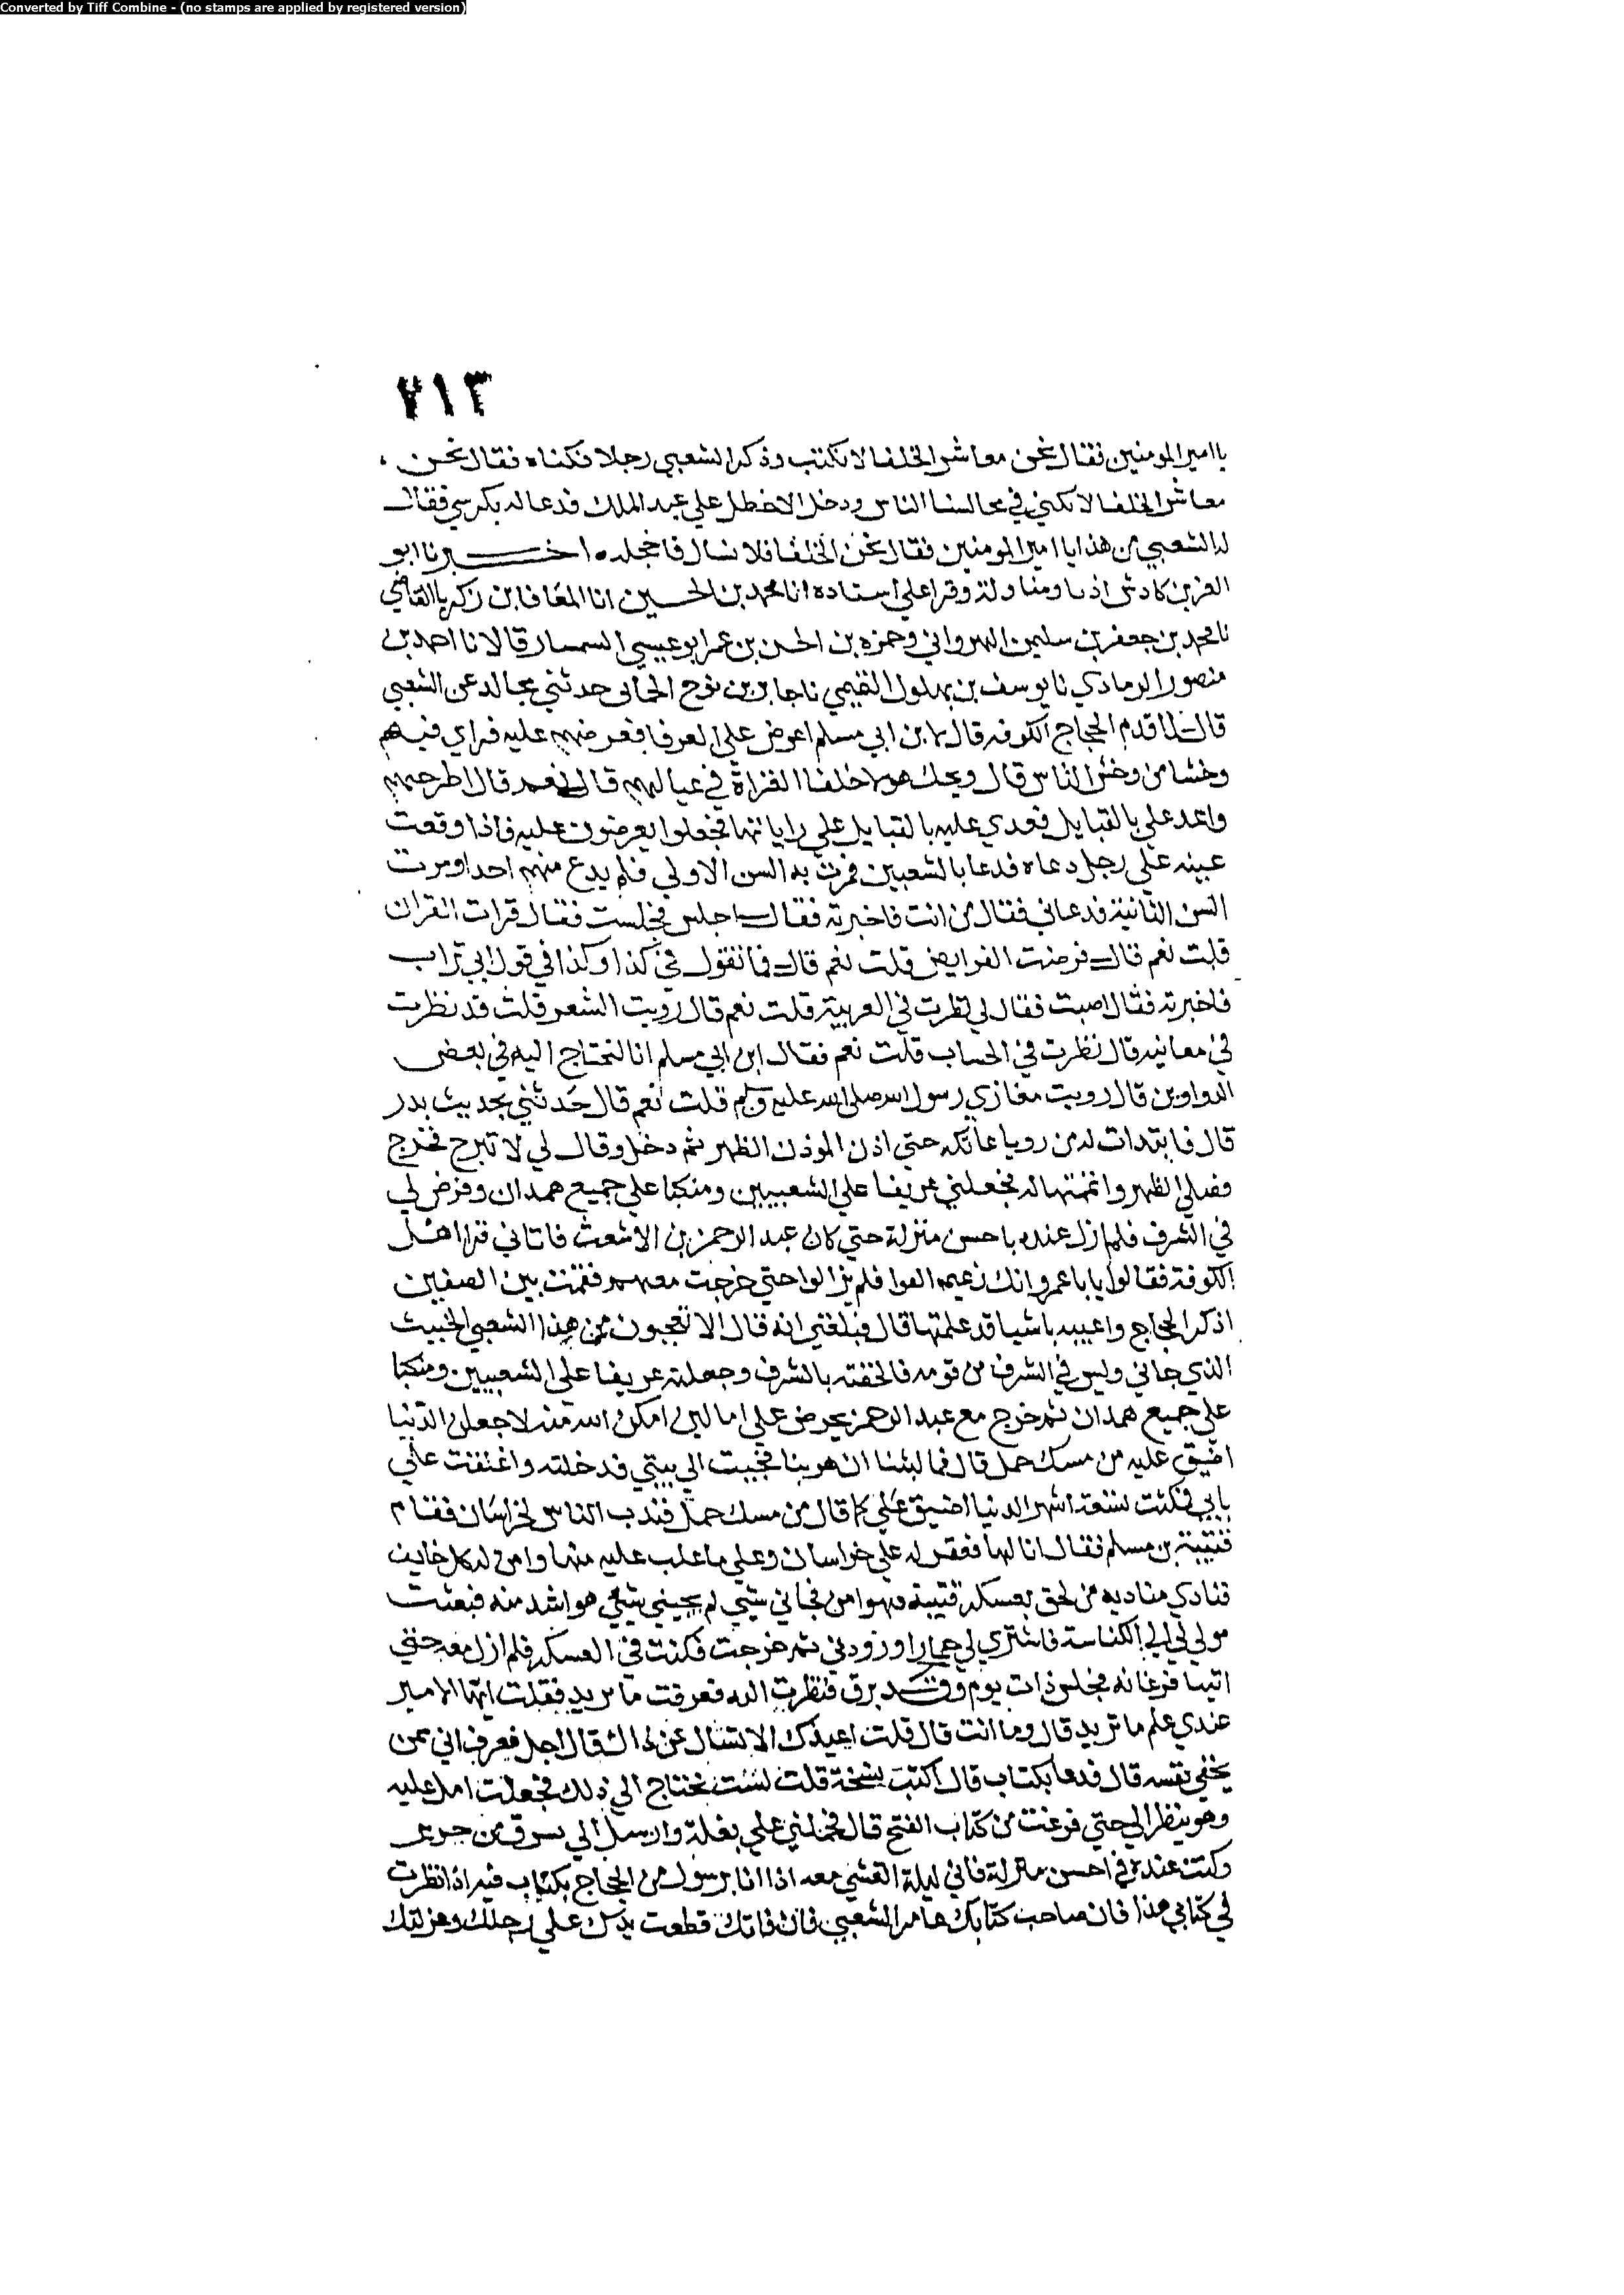 Converted by Tiff Combine - (no stamps are applied by registered version)
٢١٣
يا امير المومنين فقال نحن معاشر الخلفا لا نكتب وذكر الشعبي رجلا فكناه فقال نحن
معاشر الخلفا لا نكني في مجالسنا الناس ودخل الاخطل علي عبد الملك فدعا له بكرسي فقال
له الشعبي من هذا يا امير المومنين فقال نحن الخلفا فلا نسال فاخجله ه اخبرنا ابو
العز بن كادش اذنا ومناولة وقرا علي اسناده انا محمد بن الحسين انا المعافا بن زكريا القاضي
نا محمد بن جعفر بن سليمن النهرواني وحمزه بن الحسن بن عمر ابو عيسي السمسار قالا نا احمد بن
منصور الرمادي نا يوسف بن بهلول التيمي نا جابر بن نوح الحمانى حدثني مجالد عن الشعبي
قال لما قدم الحجاج الكوفه قال لابن ابي مسلم اعرض علي العرفا فعرضهم عليه فراي فيهم
وخشا من وخش الناس قال ويحك هولا خلفا الغزاة في عيالهم قال نعم قال اطرحهم
واغد علي بالقبايل فغدي عليه بالقبايل علي راياتها فجعلوا يعرضون عليه فاذا وقعت
عينه علي رجل دعاه فدعا بالشعبيين فمرت به السن الاولي فلم يدع منهم احدا ومرت
السن الثانية فدعاني فقال من انت فاخبرته فقال اجلس فجلست فقال قرات القران
قلت نعم قال فرضت الفرايض قلت نعم قال فما تقول في كذا وكذا في قول ابي تراب
فاخبرته فقال اصبت فقال لي نظرت في العربية قلت نعم قال رويت الشعر قلت قد نظرت
في معانيه قال نظرت في الحساب قلت نعم فقال ابن ابي مسلم انا لنحتاج اليه في بعض
الدواوين قال رويت مغازي رسول الله صلى الله عليه وسلم قلت نعم قال حدثني بحديث بدر
قال فابتدات له من رويا عاتكه حتي اذن الموذن الظهر ثم دخل وقال لي لا تبرح فخرج
فصلي الظهر واتممتها له فجعلني عريفا علي الشعبيين ومنكبا علي جميع همدان وفرض لي
في الشرف فلم ازل عنده باحسن منزلة حتي كان عبد الرحمن بن الاشعث فاتاني قرا اهل
الكوفة فقالوا يا با عمرو انك زعيم القرا فلم يزالوا حتي خرجت معهم فقمت بين الصفين
اذكر الحجاج واعيبه باشيا قد علمتها قال فبلغني انه قال الا تعجبون من هذا الشعبي الخبيث
الذي جاني وليس في الشرف من قومه فالحقته بالشرف وجعلته عريفا علي الشعبيين ومنكبا
علي جميع همدان ثم خرج مع عبد الرحمن يحرض علي اما لين امكن الله منه لاجعلن الدنيا
اضيق عليه من مسك حمل قال فما لبثنا ان هربنا فجيت الي بيتي فدخلته واغلقت علي
بابي فمكثت تسعة اشهر الدنيا اضيق علي كما قال من مسك حمل فندب الناس لخراسان فقام
قتيبة بن مسلم فقال انا لها فعقد له علي خراسان وعلي ما غلب عليه منها وامن له كل خايف
فنادي مناديه من لحق بعسكر قتيبة فهو امن فجاني شيي لم يجيني شيي هو اشد منه فبعثت
مولي لي الي الكناسة فاشتري لي حمارا وزودني ثم خرجت فكنت في العسكر فلم ازل معه حتي
اتينا فرغانه فجلس ذات يوم وقد برق فنظرت اليه فعرفت ما يريد فقلت ايها الامير
عندي علم ما تريد قال وما انت قال قلت اعيذك الا تسال عن ذاك قال اجل فعرف اني ممن
يخفي نفسه قال فدعا بكتاب قال اكتب نسخة قلت لست تحتاج الي ذلك فجعلت امل عليه
وهو ينظر الي حتي فرغت من كتاب الفتح قال فحملني علي بغلة وارسل الي بسرق من حرير
وكنت عنده في احسن منزلة فاني ليلة اتعشي معه اذا انا برسول من الحجاج بكتاب فيه اذا نظرت
في كتابي هذا فان صاحب كتابك عامر الشعبي فان فاتك قطعت يدك علي رجلك وعزلتك